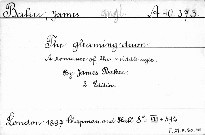 Baker, James engl. A-0 393.
The gleaming dawn.
A romance of the middle ages.
By James Baker.
2. Edition.
London: 1897 Chapman and Hall 8°.